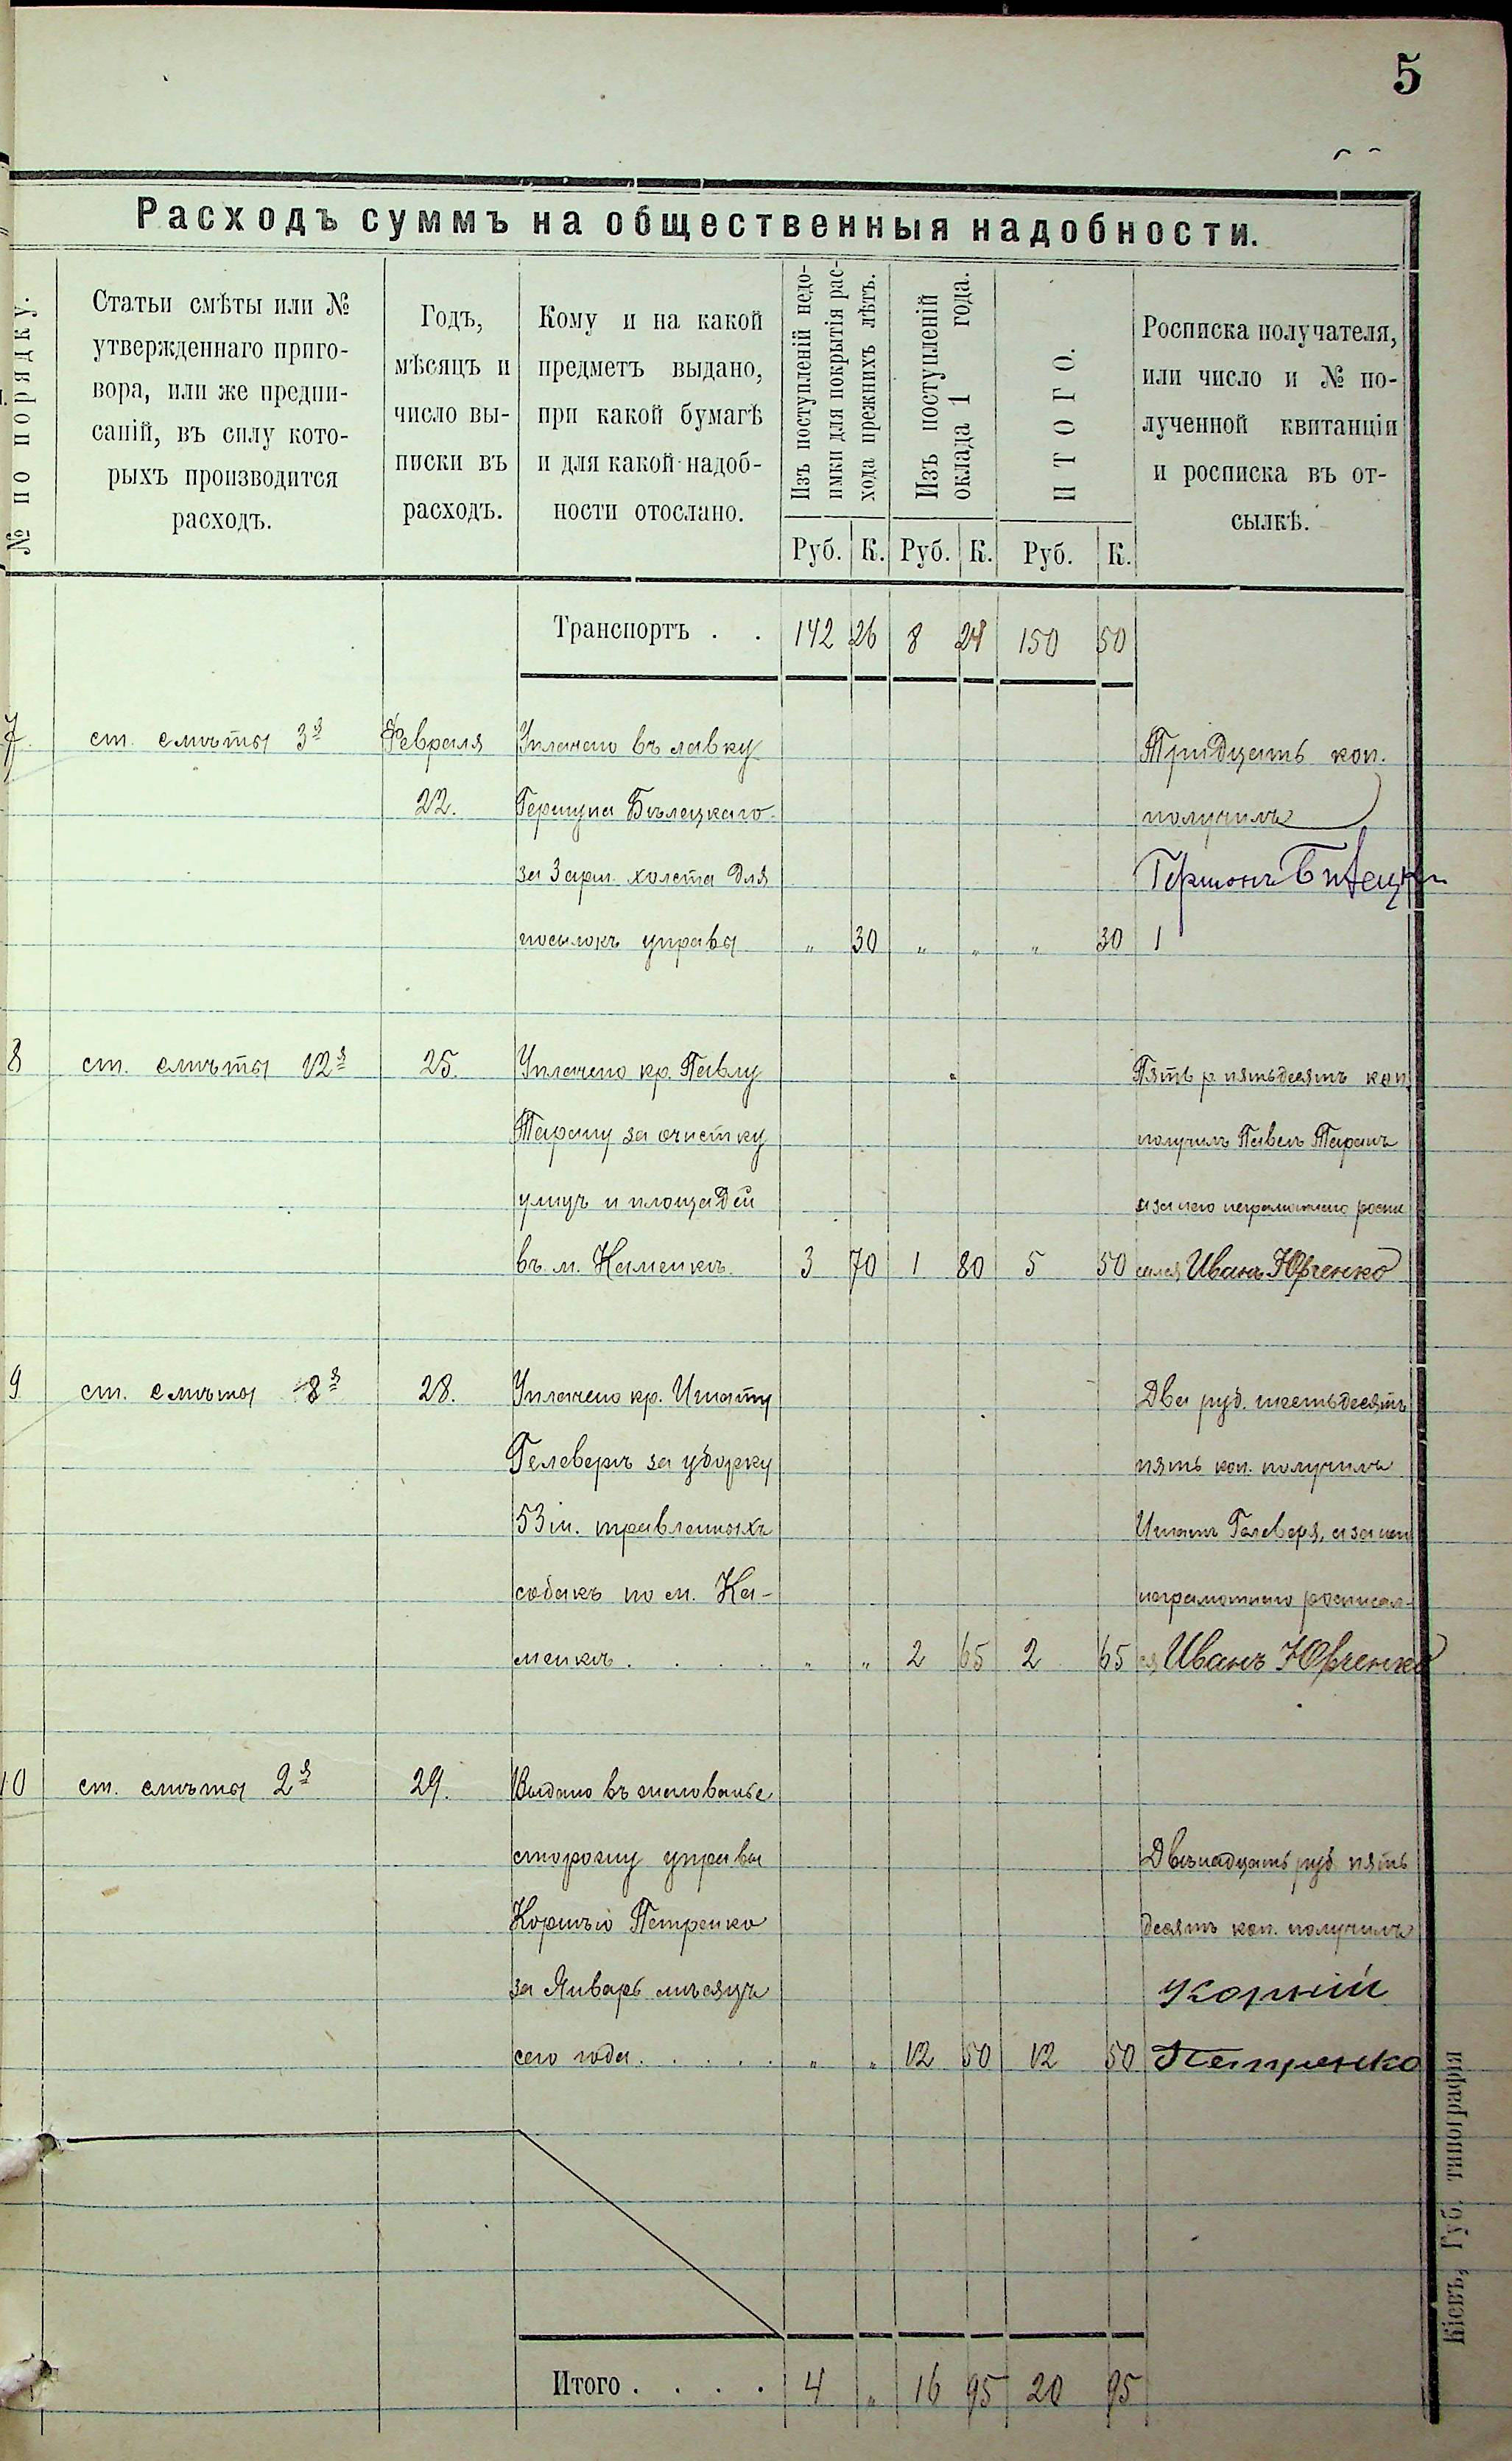 5
Расходъ суммъ на общественныя надобности.
№ по порядку.
Статьи смѣты или №
утвержденнаго приго-
вора, или же предпи-
саній, въ силу кото-
рыхъ производится
расходъ.
Годъ,
мѣсяцъ и
число вы-
писки въ
расходъ.
Кому и на какой
предметъ выдано,
при какой бумагѣ
и для какой надоб-
ности отослано.
Изъ поступленій недо-
имки для покрытія рас-
хода прежнихъ лѣтъ.
Изъ поступленій
оклада 1 года.
ИТОГО.
Росписка получателя,
или число и № по-
лученной квитанціи
и росписка въ от-
сылкѣ.
Руб. К. Руб. К. Руб. К.
Транспортъ . . 142 26 8 24 150 50
7 ст. смѣты 3я Февраля Уплачено въ лавку Тридцать коп.
22. Гершуна Бѣлецкаго получилъ
за 3 арш. холста для Гершонъ
посылокъ управы " 30 " " " 30
8 ст. смѣты 12я 25. Уплачено кр. Павлу Пять р. пятьдесятъ коп.
Тарану за очистку получилъ Павелъ Таранъ
улицъ и площадей а за него неграмотнаго роспи
въ м. Каменкѣ. 3 70 1 80 5 50 сался Иванъ Юрченко
9 ст. смѣты 8я 28. Уплачено кр. Игнату Два руб. шестьдесятъ
Гелеверѣ за уборку пять коп. получилъ
53 ш. травленныхъ Игнатъ Гелеверя, а за него
собакъ по м. Ка- неграмотнаго росписал-
менкѣ . . . . " " 2 65 2 65 ся Иванъ Юрченко
10 ст. смѣты 2я 29. Выдано въ жалованье
сторожу управы Двѣнадцать руб. пять
Корнѣю Петренко десятъ коп. получилъ
за Январь мѣсяцъ Корній
сего года . . . . . " " 12 50 12 50 Петренко
Итого . . . . 4 " 16 95 20 95
Кіевъ, Губ. типографія